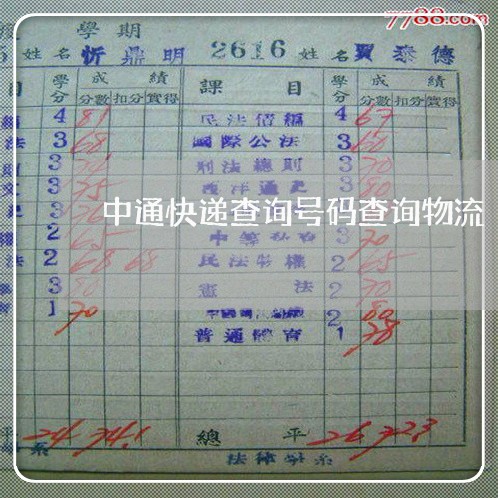 7788.com
學期
姓名 忻鼎明 2616 姓名 賈泰德
目 學分 成績 課目 學分 成績
分數 扣分 實得 分數 扣分 實得
4 81 民法債編 4 67
法 3 68 國際公法 3 60
3 刑法總則 3 70
3 75 西洋通史 3 80
中通快递查询号码查询物流
2 65 3 70
法 2 68 68 民法物權 2 65
3 80 憲法 2 70
1 70 2 80
普通體育 1 78
平 24 74.1 總平 26 72.3
系 法律學系